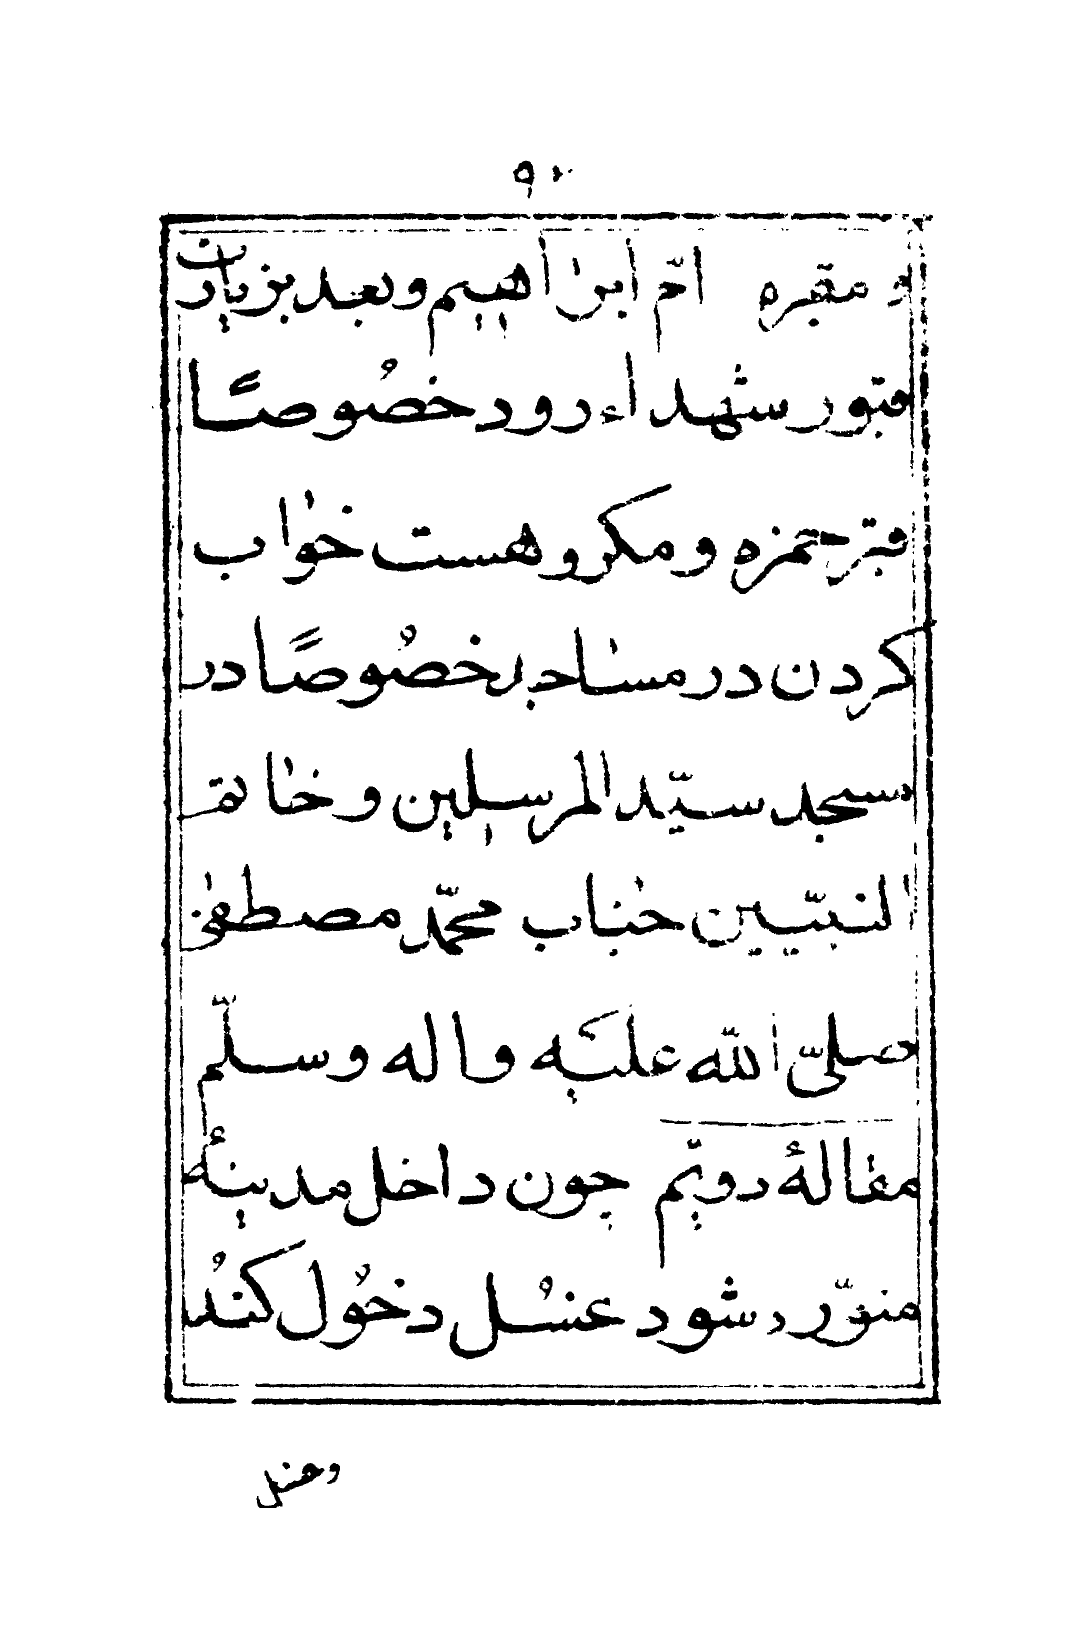 ۹۰
و مقبره امّ ابراهیم و بعد بزیارت
قبور شهداء رود خصوصًا
قبر حمزه و مکروهست خواب
کردن در مساجد خصُوصًا در
مسجد سیّد المرسلین و خاتم
النبیّین جناب محمّد مصطفی
صلیّ اللّه علیه و اله و سلّم
مقالهٔ دویّم چون داخل مدینهٔ
منوّره شود غسُل دخُول کندُ
و قبل